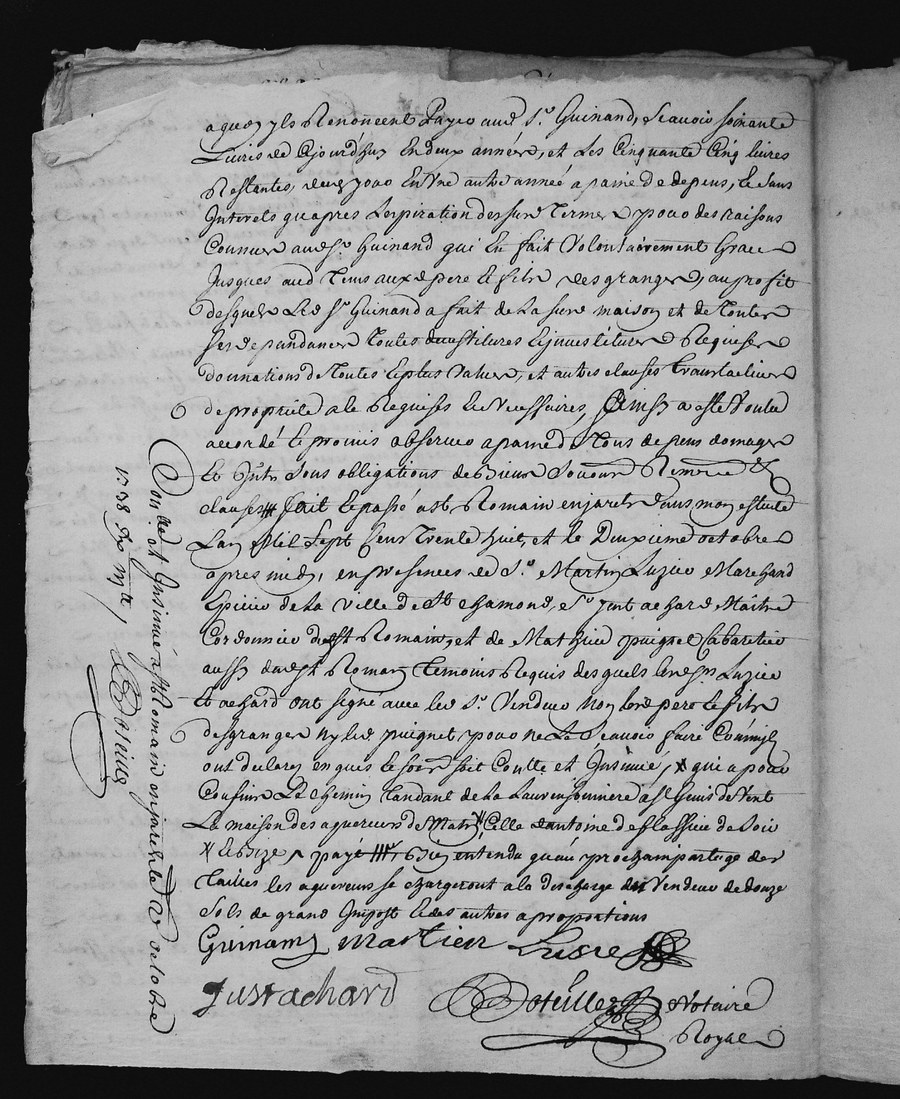 a quoy yls Renoncent payer aud sr. Guinand, scavoir soixante
Livres de cejourdhuy en deux années, et les cinquante cinq livres
Restantes, en une autre année a paine de depens, et sans
Interets qu apres Lexpiration des sus termes pour des raisons
Connues aud sr. Guinand qui en fait volontairement Grace
Jusques aud tems auxd pere et fils desgranges, au profit
desquels Led sr. Guinand a fait de la sus maison et de toutes
ses dependances toutes investitures Requises
donnations de toutes et plus values, et autres clauses translatives
de propriete a ce Requises et Necessaires, Ainsy a esté voulu
accordé et promis observer a paine de tous depens domages
et Intts sous obligations de biens
clauses fait et passé a st Romain en jarets dans mon estude
Lan Mil sept cent trente huit, et le Deuxieme octobre
apres midy, en presences de sr. Martin Luzier Marchand
Epicier de la ville de st chamond, sr. just achard Maitre
Cordonnier dud st Romain, et de Mathieu puignet Cabaretier
aussy dud st Romain temoins Requis desquels lesd srs Luzier
et achard ont signé avec led sr. Vendeur Non lesd pere et fils
desgranges ny led puignet pour ne le scavoir faire
ont declaré enquis le soir soit Coullé et Insinué, x qui a pour
Confins Le chemin tandant de la Laurensonniere a st Genis de vent
La maison des aquereurs de Matin, Celle dantoine de flassieu de soir
x et bize, payé bien entendu qu au prochain partage des
tailles les aquereurs se chargeront a la descharge du Vendeur de douze
sols de grand Impost et des autres a proportions
Guinand martien Lusie
Just achard
Boteille Notaire
Royal
Conllé et Insinué a st Romain en jarets le 2 octobre
1738